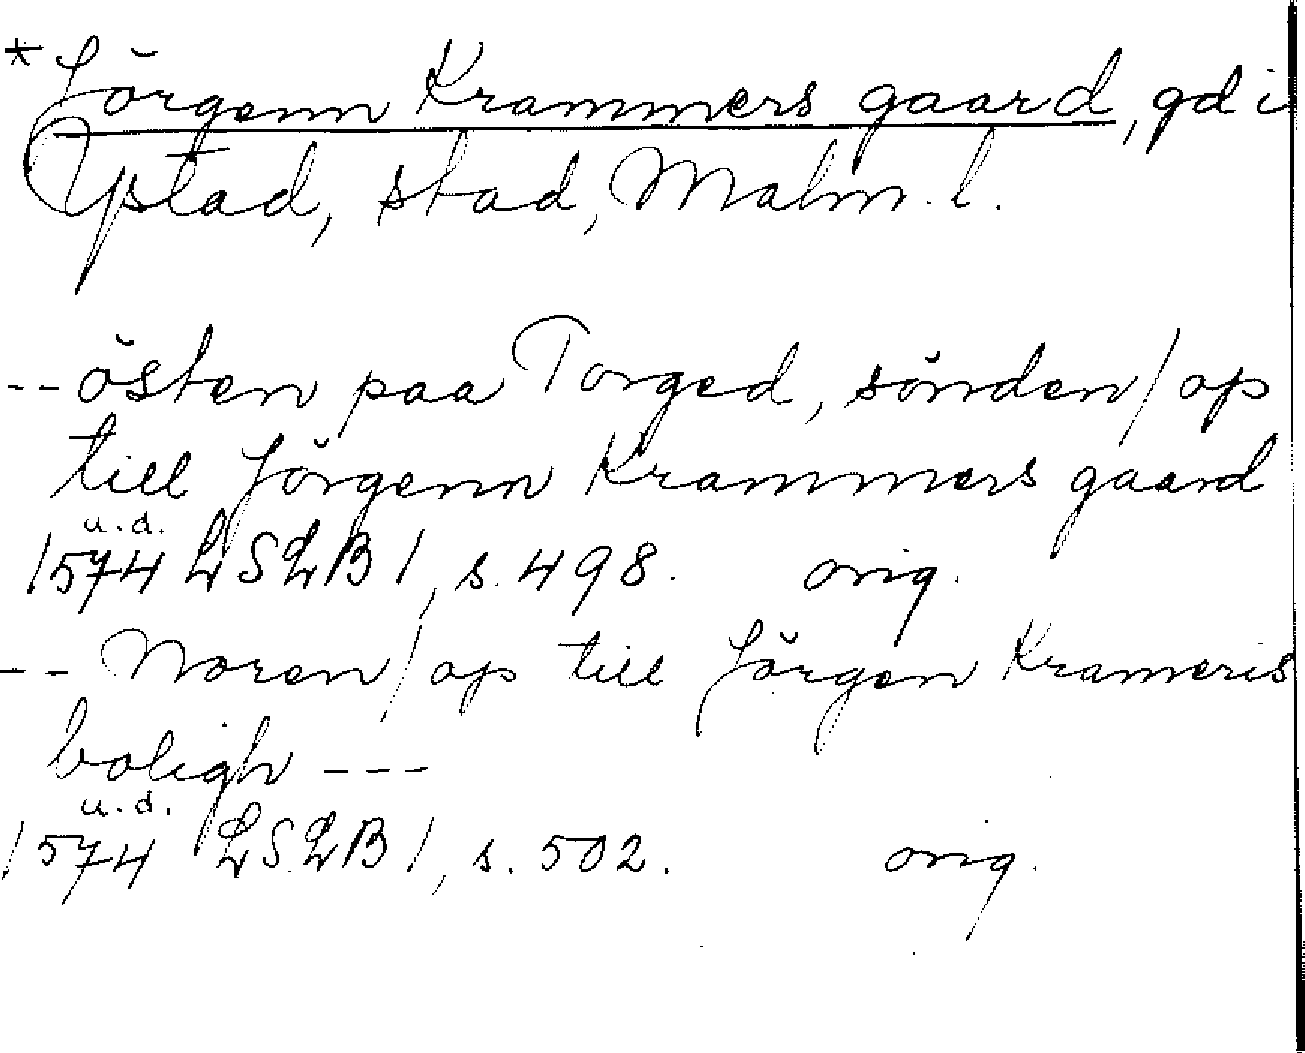 * Jörgenn Krammers gaard, gd i
Ystad, stad, Malm. l.
-- östen paa Torged, sönden/op
till Jörgenn Krammers gaard
u.d.
1574 LSLB 1, s. 498. orig.
-- Noren/op till Jörgen Krameris
boligh ---
u.d.
1574 LSLB 1, s. 502. orig.